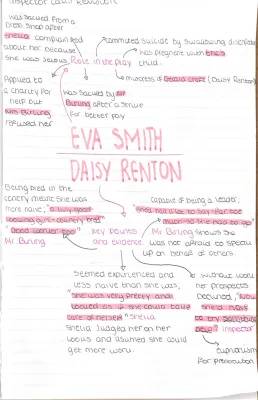 was sacked from a
Dress Shop after
Sheila complained
about her because
she was jealous.
Role in the play
commited Suicide by Swallowing disinfectant
was pregnant with Eric's
child.
mistress of Gerald Croft (Daisy Renton)
Applied to
a charity for
help but
Mrs Birling
refused her.
was Sacked by Mr
Birling after a Strike
for better pay
EVA SMITH
DAISY RENTON
Being bred in the
country meant she was
more naive, "a lively good
looking girl - country bred"
"Good worker too"
Mr Birling
Key points
and evidence.
capable of being a leader,
"She'd had a lot to say - far too
much - so she had to go"
Mr Birling Shows she
was not afraid to speak
up on behalf of others.
Seemed experienced and
less naive than she was,
"she was very pretty and
looked as if she could take
care of herself" Sheila
Sheila judged her on her
looks and assumed she could
get more work.
without work
her prospects
declined, "Now
she had
to try Something
else" Inspector
Euphemism
for prostitution